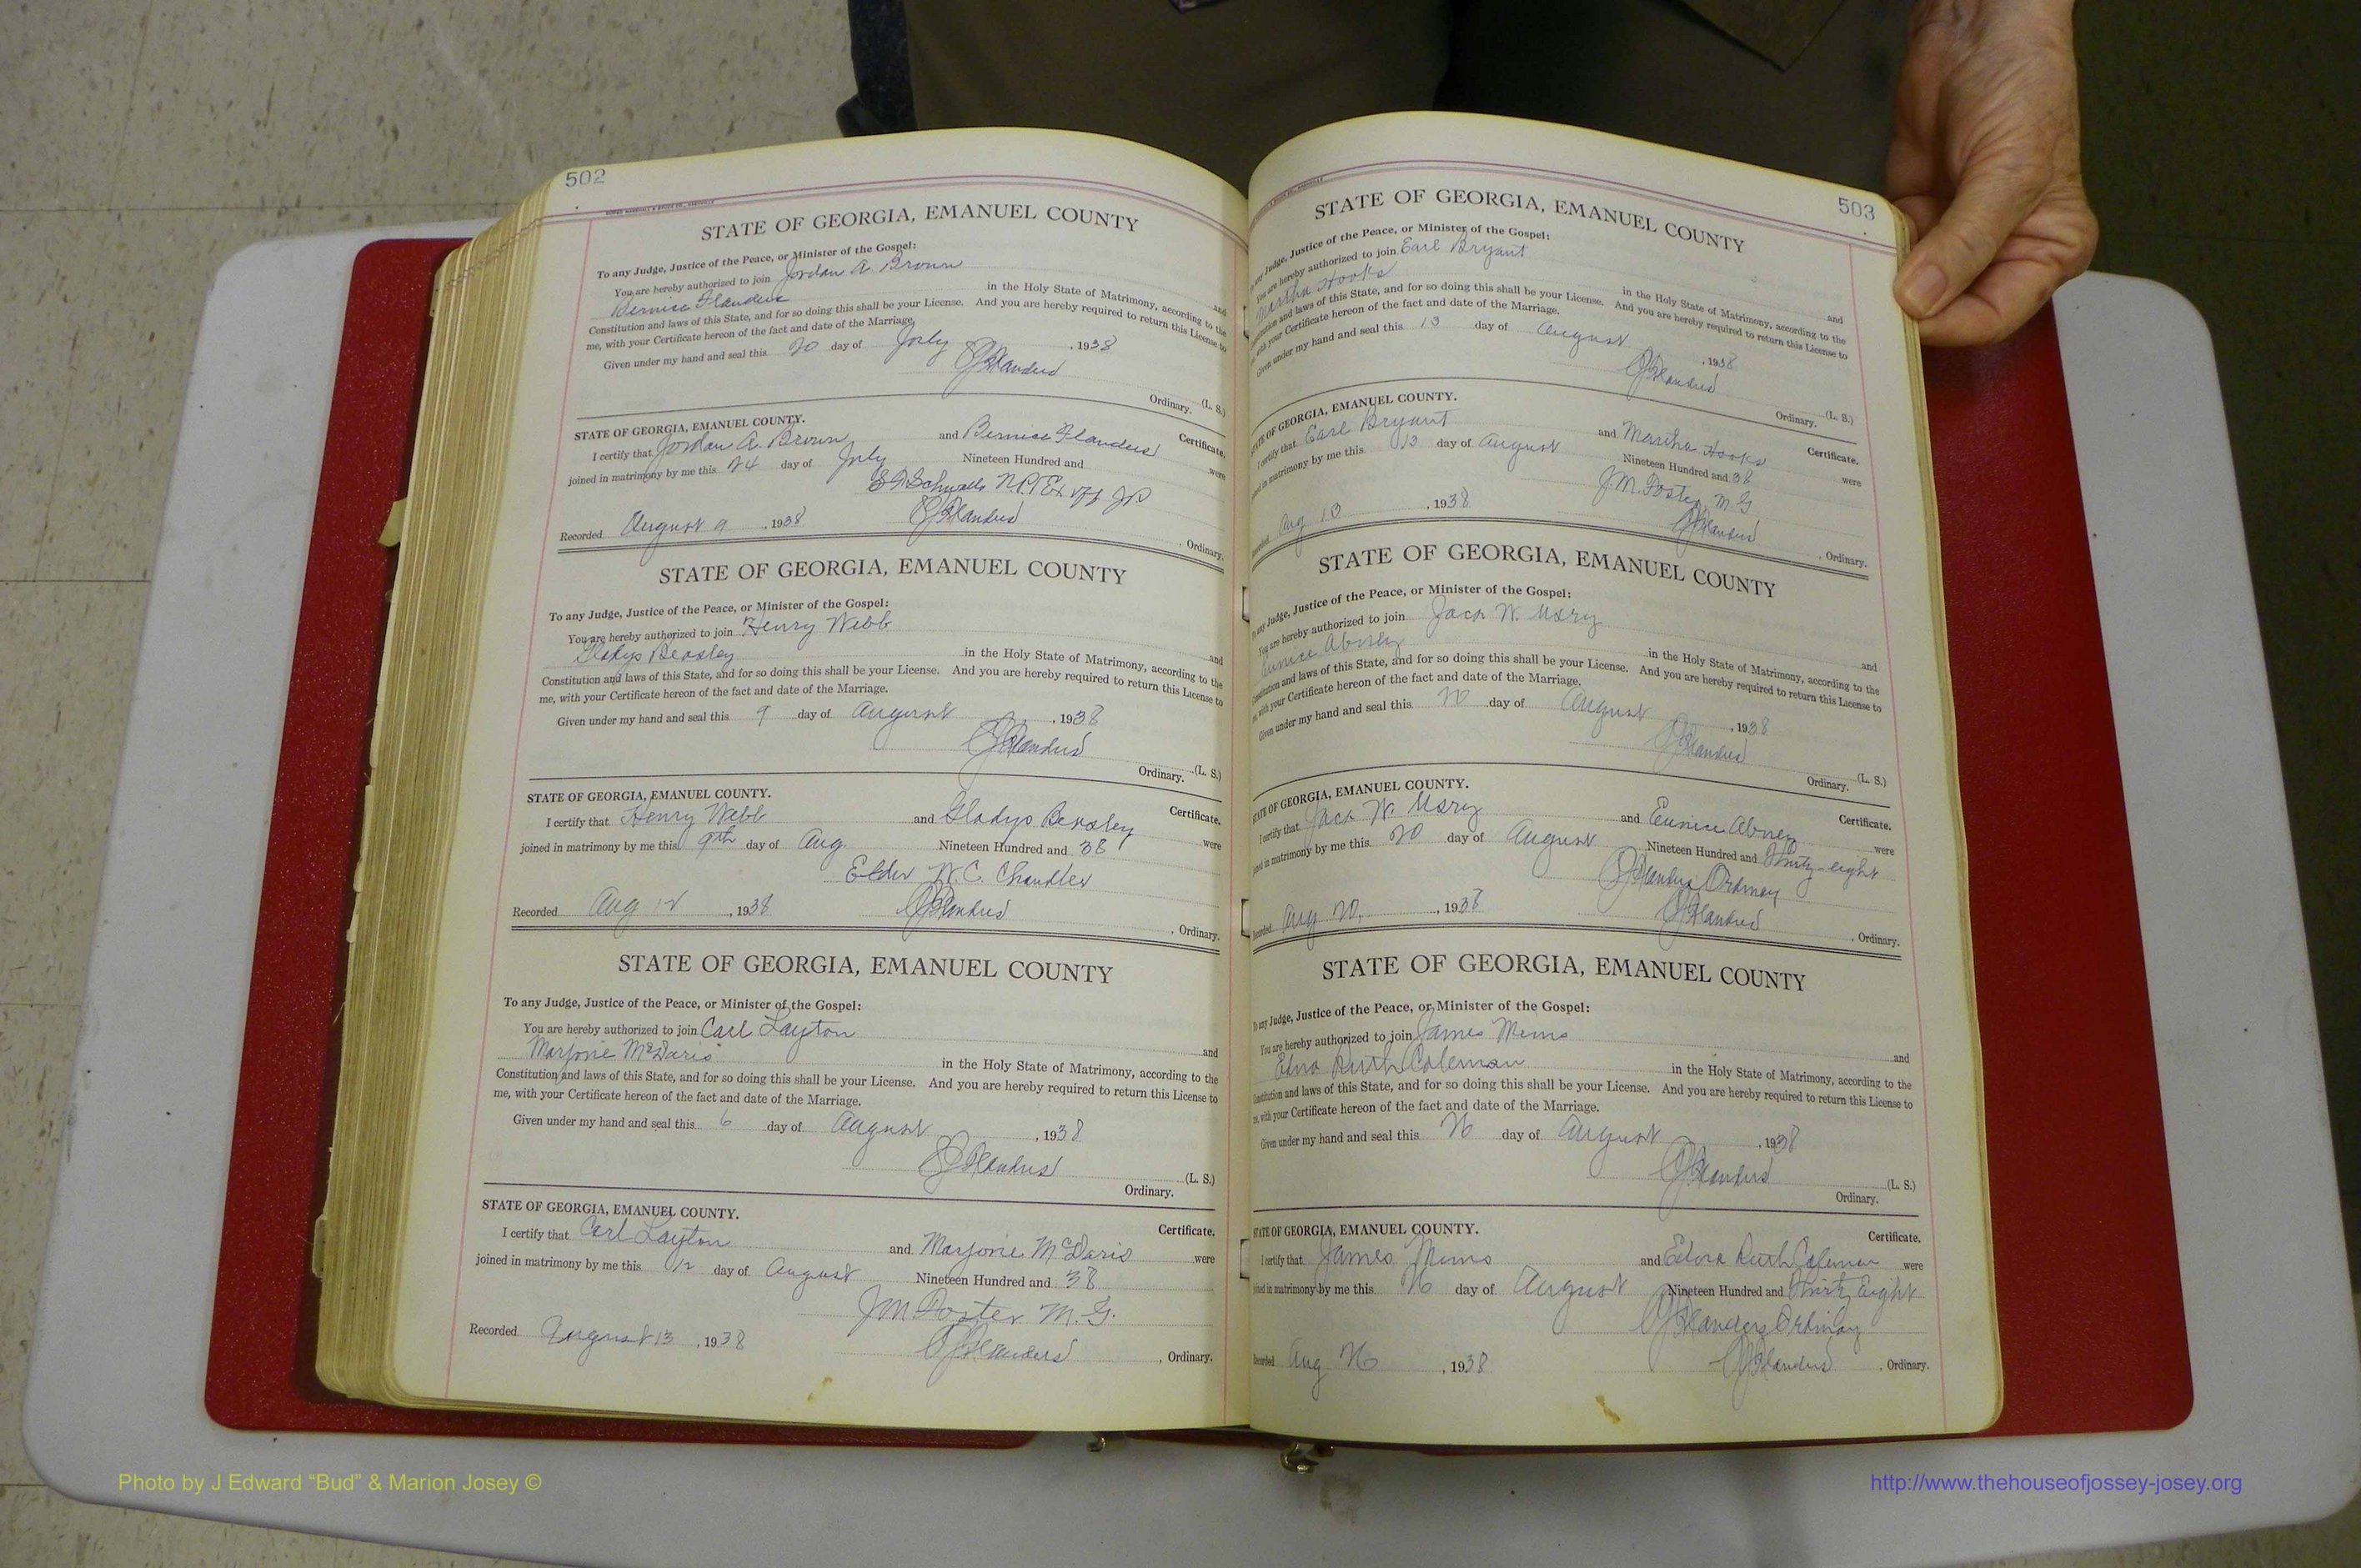 502
STATE OF GEORGIA, EMANUEL COUNTY
To any Judge, Justice of the Peace, or Minister of the Gospel:
You are hereby authorized to join Jordan A. Brown
and
Bernice Flanders in the Holy State of Matrimony, according to the
Constitution and laws of this State, and for so doing this shall be your License. And you are hereby required to return this License to
me, with your Certificate hereon of the fact and date of the Marriage.
Given under my hand and seal this 20 day of July, 1938
Flanders (L. S.)
Ordinary.
STATE OF GEORGIA, EMANUEL COUNTY. Certificate.
I certify that Jordan A. Brown and Bernice Flanders were
joined in matrimony by me this 24 day of July Nineteen Hundred and
N.P. & Ex off J.P.
Recorded August 9, 1938 Flanders, Ordinary.
STATE OF GEORGIA, EMANUEL COUNTY
To any Judge, Justice of the Peace, or Minister of the Gospel:
You are hereby authorized to join Henry Webb
and
Gladys Beasley in the Holy State of Matrimony, according to the
Constitution and laws of this State, and for so doing this shall be your License. And you are hereby required to return this License to
me, with your Certificate hereon of the fact and date of the Marriage.
Given under my hand and seal this 9 day of August, 1938
Flanders (L. S.)
Ordinary.
STATE OF GEORGIA, EMANUEL COUNTY. Certificate.
I certify that Henry Webb and Gladys Beasley were
joined in matrimony by me this 9th day of Aug. Nineteen Hundred and 38
Elder W. C. Chandler
Recorded Aug 12, 1938 Flanders, Ordinary.
STATE OF GEORGIA, EMANUEL COUNTY
To any Judge, Justice of the Peace, or Minister of the Gospel:
You are hereby authorized to join Carl Layton
and
Marjorie McDaris in the Holy State of Matrimony, according to the
Constitution and laws of this State, and for so doing this shall be your License. And you are hereby required to return this License to
me, with your Certificate hereon of the fact and date of the Marriage.
Given under my hand and seal this 6 day of August, 1938
Flanders (L. S.)
Ordinary.
STATE OF GEORGIA, EMANUEL COUNTY. Certificate.
I certify that Carl Layton and Marjorie McDaris were
joined in matrimony by me this 12 day of August Nineteen Hundred and 38
J.M. Foster M. G.
Recorded August 13, 1938 Flanders, Ordinary.
503
STATE OF GEORGIA, EMANUEL COUNTY
any Judge, Justice of the Peace, or Minister of the Gospel:
You are hereby authorized to join Earl Bryant
and
Martha Hooks in the Holy State of Matrimony, according to the
and laws of this State, and for so doing this shall be your License. And you are hereby required to return this License to
with your Certificate hereon of the fact and date of the Marriage.
Given under my hand and seal this 13 day of August, 1938
Flanders (L. S.)
Ordinary.
STATE OF GEORGIA, EMANUEL COUNTY. Certificate.
I certify that Earl Bryant and Martha Hooks were
in matrimony by me this 13 day of August Nineteen Hundred and 38
J. M. Foster M. G
Aug 13, 1938 Flanders, Ordinary.
STATE OF GEORGIA, EMANUEL COUNTY
any Judge, Justice of the Peace, or Minister of the Gospel:
You are hereby authorized to join Jack W. Usry
and
Eunice Abney in the Holy State of Matrimony, according to the
and laws of this State, and for so doing this shall be your License. And you are hereby required to return this License to
with your Certificate hereon of the fact and date of the Marriage.
Given under my hand and seal this 20 day of August, 1938
Flanders (L. S.)
Ordinary.
STATE OF GEORGIA, EMANUEL COUNTY. Certificate.
I certify that Jack W. Usry and Eunice Abney were
in matrimony by me this 20 day of August Nineteen Hundred and thirty-eight
Flanders Ordinary
Aug 20, 1938 Flanders, Ordinary.
STATE OF GEORGIA, EMANUEL COUNTY
To any Judge, Justice of the Peace, or Minister of the Gospel:
You are hereby authorized to join James Mims
and
Ruth Coleman in the Holy State of Matrimony, according to the
Constitution and laws of this State, and for so doing this shall be your License. And you are hereby required to return this License to
with your Certificate hereon of the fact and date of the Marriage.
Given under my hand and seal this 26 day of August, 1938
Flanders (L. S.)
Ordinary.
STATE OF GEORGIA, EMANUEL COUNTY. Certificate.
I certify that James Mims and Ruth Coleman were
joined in matrimony by me this 26 day of August Nineteen Hundred and Thirty Eight
Flanders Ordinary
Recorded Aug 26, 1938 Flanders, Ordinary.
Photo by J Edward “Bud” & Marion Josey ©
http://www.thehouseofjossey-josey.org